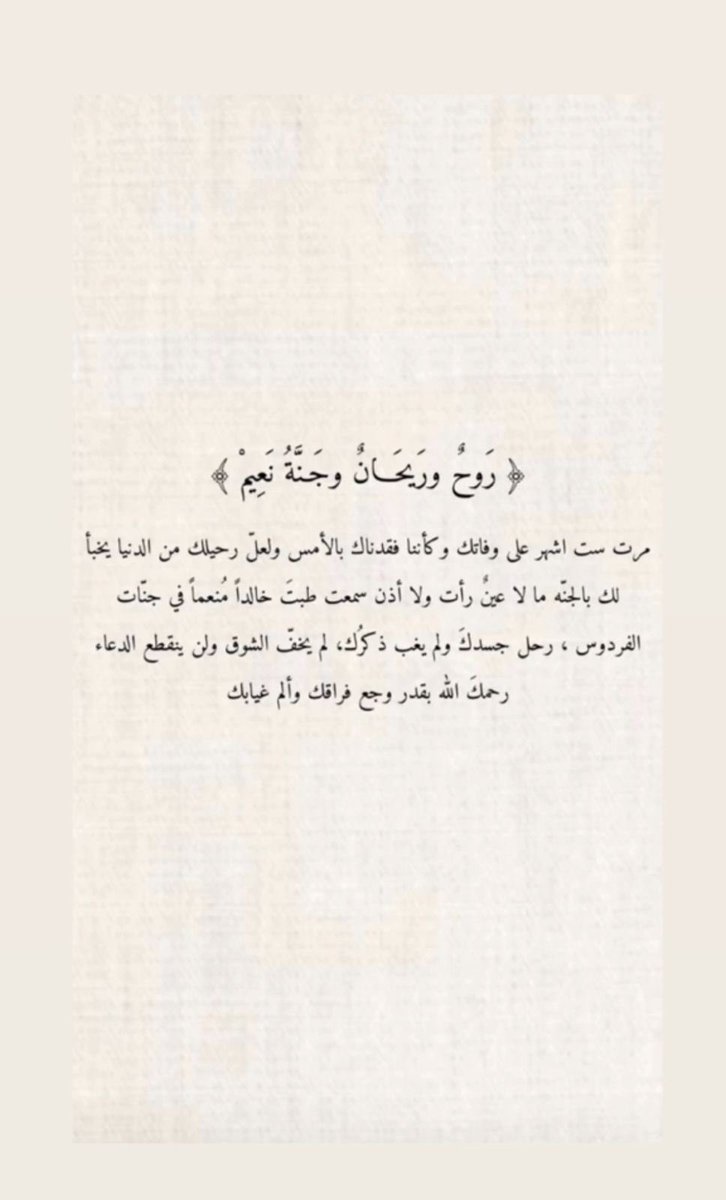 ﴿ رَوحٌ ورَيحَـانٌ وجَـنَّةُ نَعِيمْ ﴾
مرت ست اشهر على وفاتك وكأننا فقدناك بالأمس ولعلّ رحيلك من الدنيا يخبأ
لك بالجنّه ما لا عينٌ رأت ولا أذن سمعت طبتَ خالداً مُنعماً في جنّات
الفردوس ، رحل جسدكَ ولم يغب ذكرُك، لم يخفّ الشوق ولن ينقطع الدعاء
رحمكَ الله بقدر وجع فراقك وألم غيابك